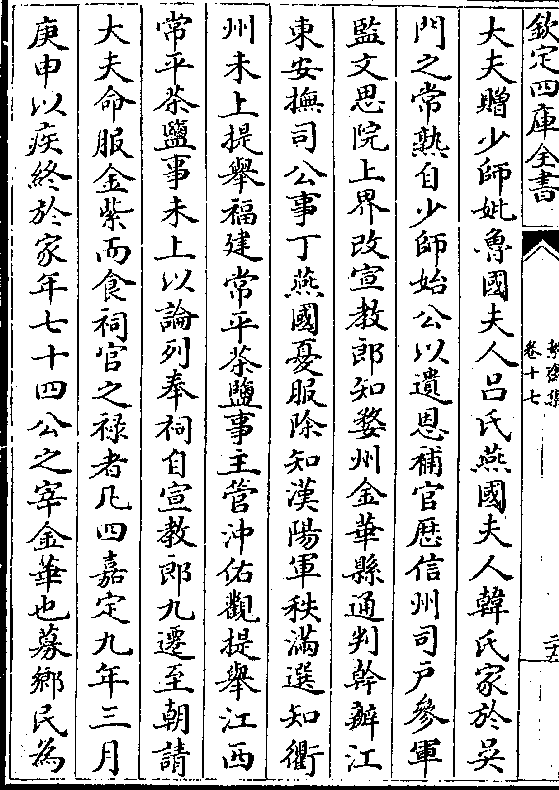 欽定四庫全書
卷十七
大夫贈少師妣魯國夫人呂氏燕國夫人韓氏家於吳
門之常熟自少師始公以遺恩補官歴信州司戶參軍
監文思院上界改宣教郎知婺州金華縣通判幹辦江
東安撫司公事丁燕國憂服除知漢陽軍秩滿選知衢
州未上提舉福建常平茶鹽事主管沖佑觀提舉江西
常平茶鹽事未上以論列奉祠自宣教郎九遷至朝請
大夫命服金紫而食祠官之祿者凡四嘉定九年三月
庚申以疾終於家年七十四公之宰金華也募鄉民為